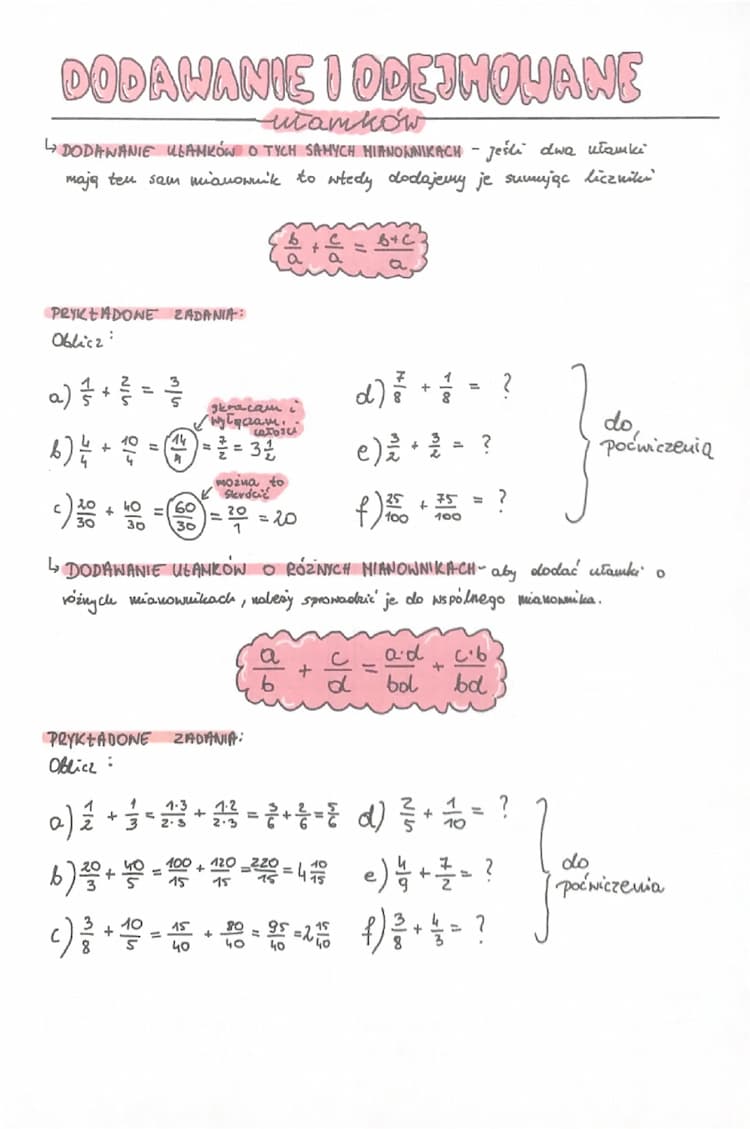 DODAWANIE I ODEJMOWANE
ułamków
↳ DODAWANIE UŁAMKÓW O TYCH SAMYCH MIANOWNIKACH - jeśli dwa ułamki
mają ten sam mianownik to wtedy dodajemy je sumując liczniki
b/a + c/a = b+c/a
PRYKŁADOWE ZADANIA:
Oblicz:
a) 1/5 + 2/5 = 3/5
skracam i wyłączam całości
b) 4/4 + 10/4 = 14/4 = 7/2 = 3 1/2
można to skrócić
c) 20/30 + 40/30 = 60/30 = 20/1 = 20
d) 7/8 + 1/8 = ?
e) 3/2 + 3/2 = ?
f) 25/100 + 75/100 = ?
do
poćwiczenia
↳ DODAWANIE UŁAMKÓW O RÓŻNYCH MIANOWNIKACH - aby dodać ułamki o
różnych mianownikach, należy sprowadzić je do wspólnego mianownika.
a/b + c/d = a·d/bd + c·b/bd
PRYKŁADOWE ZADANIA:
Oblicz:
a) 1/2 + 1/3 = 1·3/2·3 + 1·2/2·3 = 3/6 + 2/6 = 5/6
b) 20/3 + 40/5 = 100/15 + 120/15 = 220/15 = 4 10/15
c) 3/8 + 10/5 = 15/40 + 80/40 = 95/40 = 2 15/40
d) 2/5 + 1/10 = ?
e) 4/9 + 7/2 = ?
f) 3/8 + 4/3 = ?
do
poćwiczenia